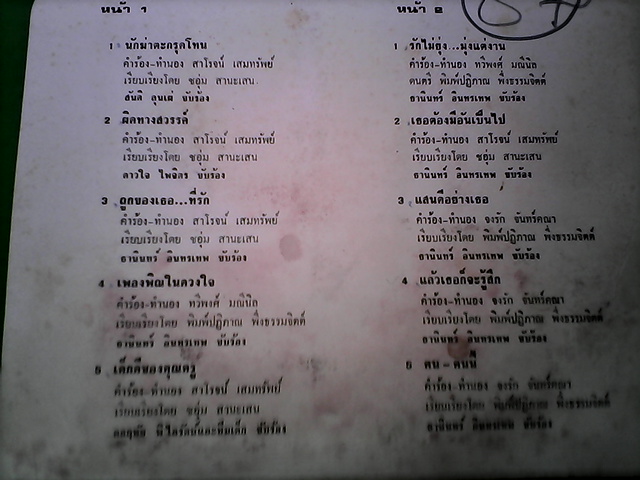 หน้า 1
1 นักฆ่าตะกรุดโทน
คำร้อง-ทำนอง สาโรจน์ เสมทรัพย์
เรียบเรียงโดย ชอุ่ม สานะเสน
สันติ ลุนเผ่ ขับร้อง
2 ผิดทางสวรรค์
คำร้อง-ทำนอง สาโรจน์ เสมทรัพย์
เรียบเรียงโดย ชอุ่ม สานะเสน
ดาวใจ ไพจิตร ขับร้อง
3 ถูกของเธอ...ที่รัก
คำร้อง-ทำนอง สาโรจน์ เสมทรัพย์
เรียบเรียงโดย ชอุ่ม สานะเสน
ธานินทร์ อินทรเทพ ขับร้อง
4 เพลงพิณในดวงใจ
คำร้อง-ทำนอง ทวีพงศ์ มณีนิล
เรียบเรียงโดย พิมพ์ปฏิภาณ พึ่งธรรมจิตต์
ธานินทร์ อินทรเทพ ขับร้อง
5 เด็กดีของคุณครู
คำร้อง-ทำนอง สาโรจน์ เสมทรัพย์
เรียบเรียงโดย ชอุ่ม สานะเสน
และทีมเด็ก ขับร้อง
หน้า 2
1 รักไม่ยุ่ง...มุ่งแต่งาน
คำร้อง-ทำนอง ทวีพงศ์ มณีนิล
ดนตรี พิมพ์ปฏิภาณ พึ่งธรรมจิตต์
ธานินทร์ อินทรเทพ ขับร้อง
2 เธอต้องมีอันเป็นไป
คำร้อง-ทำนอง สาโรจน์ เสมทรัพย์
เรียบเรียงโดย ชอุ่ม สานะเสน
ธานินทร์ อินทรเทพ ขับร้อง
3 แสนดีอย่างเธอ
คำร้อง-ทำนอง จงรัก จันทร์คณา
เรียบเรียงโดย พิมพ์ปฏิภาณ พึ่งธรรมจิตต์
ธานินทร์ อินทรเทพ ขับร้อง
4 แล้วเธอก็จะรู้สึก
คำร้อง-ทำนอง จงรัก จันทร์คณา
เรียบเรียงโดย พิมพ์ปฏิภาณ พึ่งธรรมจิตต์
ธานินทร์ อินทรเทพ ขับร้อง
5 คน-คนนี้
คำร้อง-ทำนอง จงรัก จันทร์คณา
เรียบเรียงโดย พิมพ์ปฏิภาณ พึ่งธรรมจิตต์
ธานินทร์ อินทรเทพ ขับร้อง